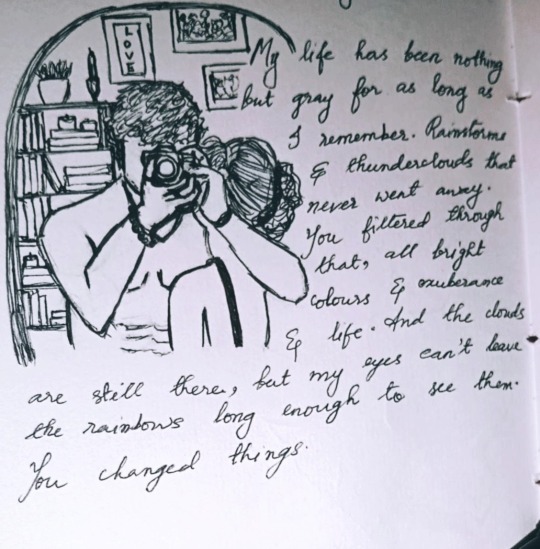 LOVE
My life has been nothing
but gray for as long as
I remember. Rainstorms
& thunderclouds that
never went away.
You filtered through
that, all bright
colours & exuberance
& life. And the clouds
are still there, but my eyes can't leave
the rainbows long enough to see them.
You changed things.